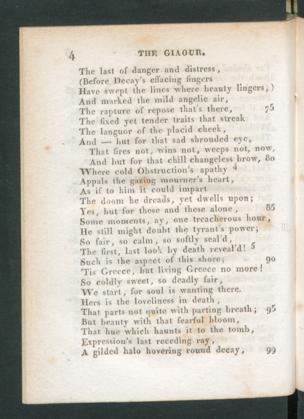 4 THE GIAOUR.
The last of danger and distress,
(Before Decay's effacing fingers
Have swept the lines where beauty lingers;)
And marked the mild angelic air,
The rapture of repose that's there, 75
The fixed yet tender traits that streak
The languor of the placid cheek,
And — but for that sad shrouded eye,
That fires not, wins not, weeps not, now,
And but for that chill changeless brow, 80
Where cold Obstruction's apathy 4
Appals the gazing mourner's heart,
As if to him it could impart
The doom he dreads, yet dwells upon;
Yes, but for these and these alone, 85
Some moments, ay, one treacherous hour,
He still might doubt the tyrant's power;
So fair, so calm, so softly seal'd,
The first, last look by death reveal'd! 5
Such is the aspect of this shore; 90
'Tis Greece, but living Greece no more!
So coldly sweet, so deadly fair,
We start, for soul is wanting there.
Hers is the loveliness in death,
That parts not quite with parting breath; 95
But beauty with that fearful bloom,
That hue which haunts it to the tomb,
Expression's last receding ray,
A gilded halo hovering round decay, 99